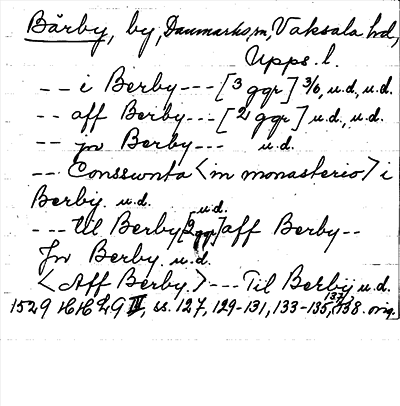 Bärby, by, Danmarks, sn, Vaksala hd,
Upps. l.
-- i Berby --- [3 ggr] 3/6, u.d., u.d.
-- aff Berby --- [2 ggr] u.d., u.d.
-- Berby --- u.d.
--- <in monasterio> i
Berby. u.d.
--- til Berby [2 ggr] u.d. aff Berby --
Berby. u.d.
<Aff Berby.> --- Til Berby u.d.
1529 HHLG II, ss. 127, 129-131, 133-135, 137, 138. orig.